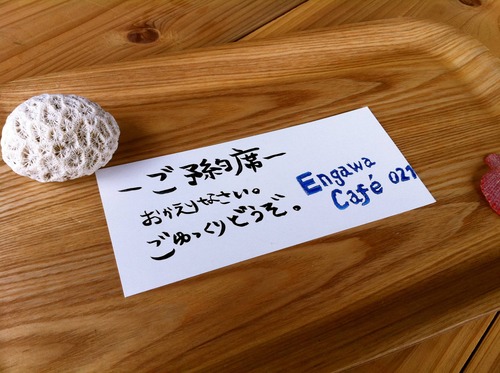 ーご予約席ー
おかえりなさい。
ごゆっくりどうぞ。
Engawa
Café 021